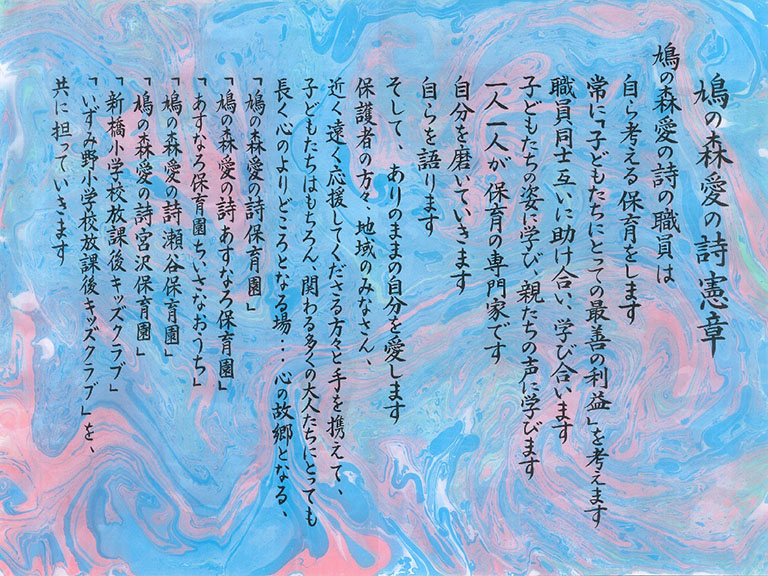 鳩の森愛の詩憲章
鳩の森愛の詩の職員は
自ら考える保育をします
常に「子どもたちにとっての最善の利益」を考えます
職員同士互いに助け合い、学び合います
子どもたちの姿に学び、親たちの声に学びます
一人一人が保育の専門家です
自分を磨いていきます
自らを語ります
そして、ありのままの自分を愛します
保護者の方々、地域のみなさん、
近く遠く応援してくださる方々と手を携えて、
子どもたちはもちろん、関わる多くの大人たちにとっても
長く心のよりどころとなる場…心の故郷となる、
「鳩の森愛の詩保育園」
「鳩の森愛の詩あすなろ保育園」
「あすなろ保育園ちいさなおうち」
「鳩の森愛の詩瀬谷保育園」
「鳩の森愛の詩宮沢保育園」
「新橋小学校放課後キッズクラブ」
「いずみ野小学校放課後キッズクラブ」を、
共に担っていきます